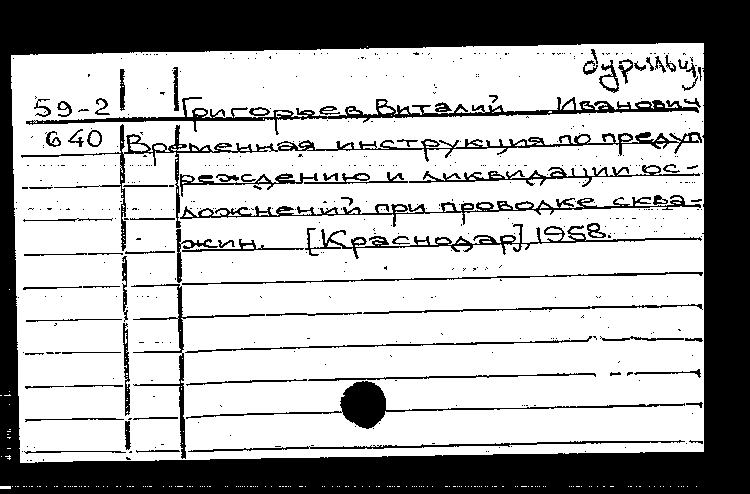 59-2 Григорьев, Виталий Иванович
640 Временная инструкция по предуп
реждению и ликвидации ос-
ложнений при проводке сква-
жин. [Краснодар], 1958.